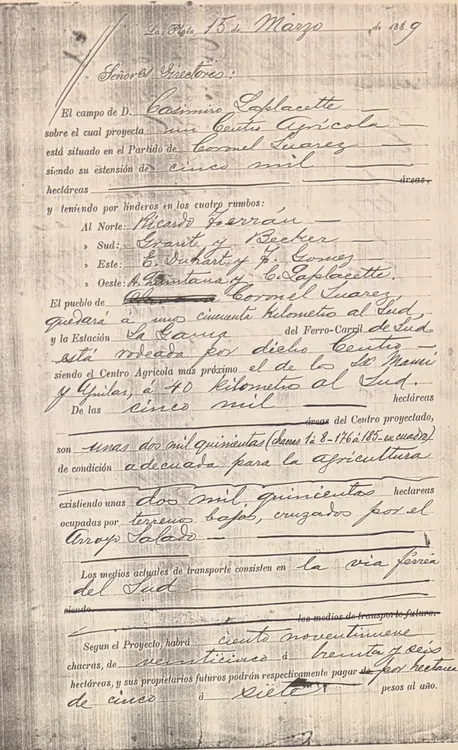 La Plata, 15 de Marzo de 1889
Señores Directores:
El campo de D. Casimiro Laplacette
sobre el cual proyecta un Centro Agrícola
está situado en el Partido de Coronel Suarez
siendo su estensión de cinco mil
hectáreas áreas,
y teniendo por linderos en los cuatro rumbos:
Al Norte: Ricardo Ferrán
» Sud: Grant y Becker
» Este: E. Duhart y F. Gomez
» Oeste: A. Quintana y C. Laplacette.
El pueblo de Coronel Suarez
quedará a unos cincuenta kilometros al Sud,
y la Estación La Gama del Ferro-Carril de Sud
está rodeada por dicho Centro
siendo el Centro Agrícola más próximo el de los Sres
y Aguilar, á 40 kilometros al Sud.
De las cinco mil hectáreas
áreas del Centro proyectado,
son unas dos mil quinientas (chacras 1 á 8-176 á 185-en cuadro)
de condición adecuada para la agricultura
existiendo unas dos mil quinientas hectareas
ocupadas por terrenos bajos, cruzados por el
Arroyo Salado
Los medios actuales de transporte consisten en la via férrea
del Sud
siendo
los medios de transporte futuro.
Segun el Proyecto, habrá ciento noventinueve
chacras, de veinticinco á treinta y seis
hectáreas, y sus propietarios futuros podrán respectivamente pagar de por hectarea
de cinco á siete pesos al año.